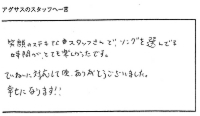 アグサスのスタッフへ一言
笑顔のステキなスタッフさんで、リングを選んでる
時間がとても楽しかったです。
ていねいに対応して頂、ありがとうございました。
幸せになります!!